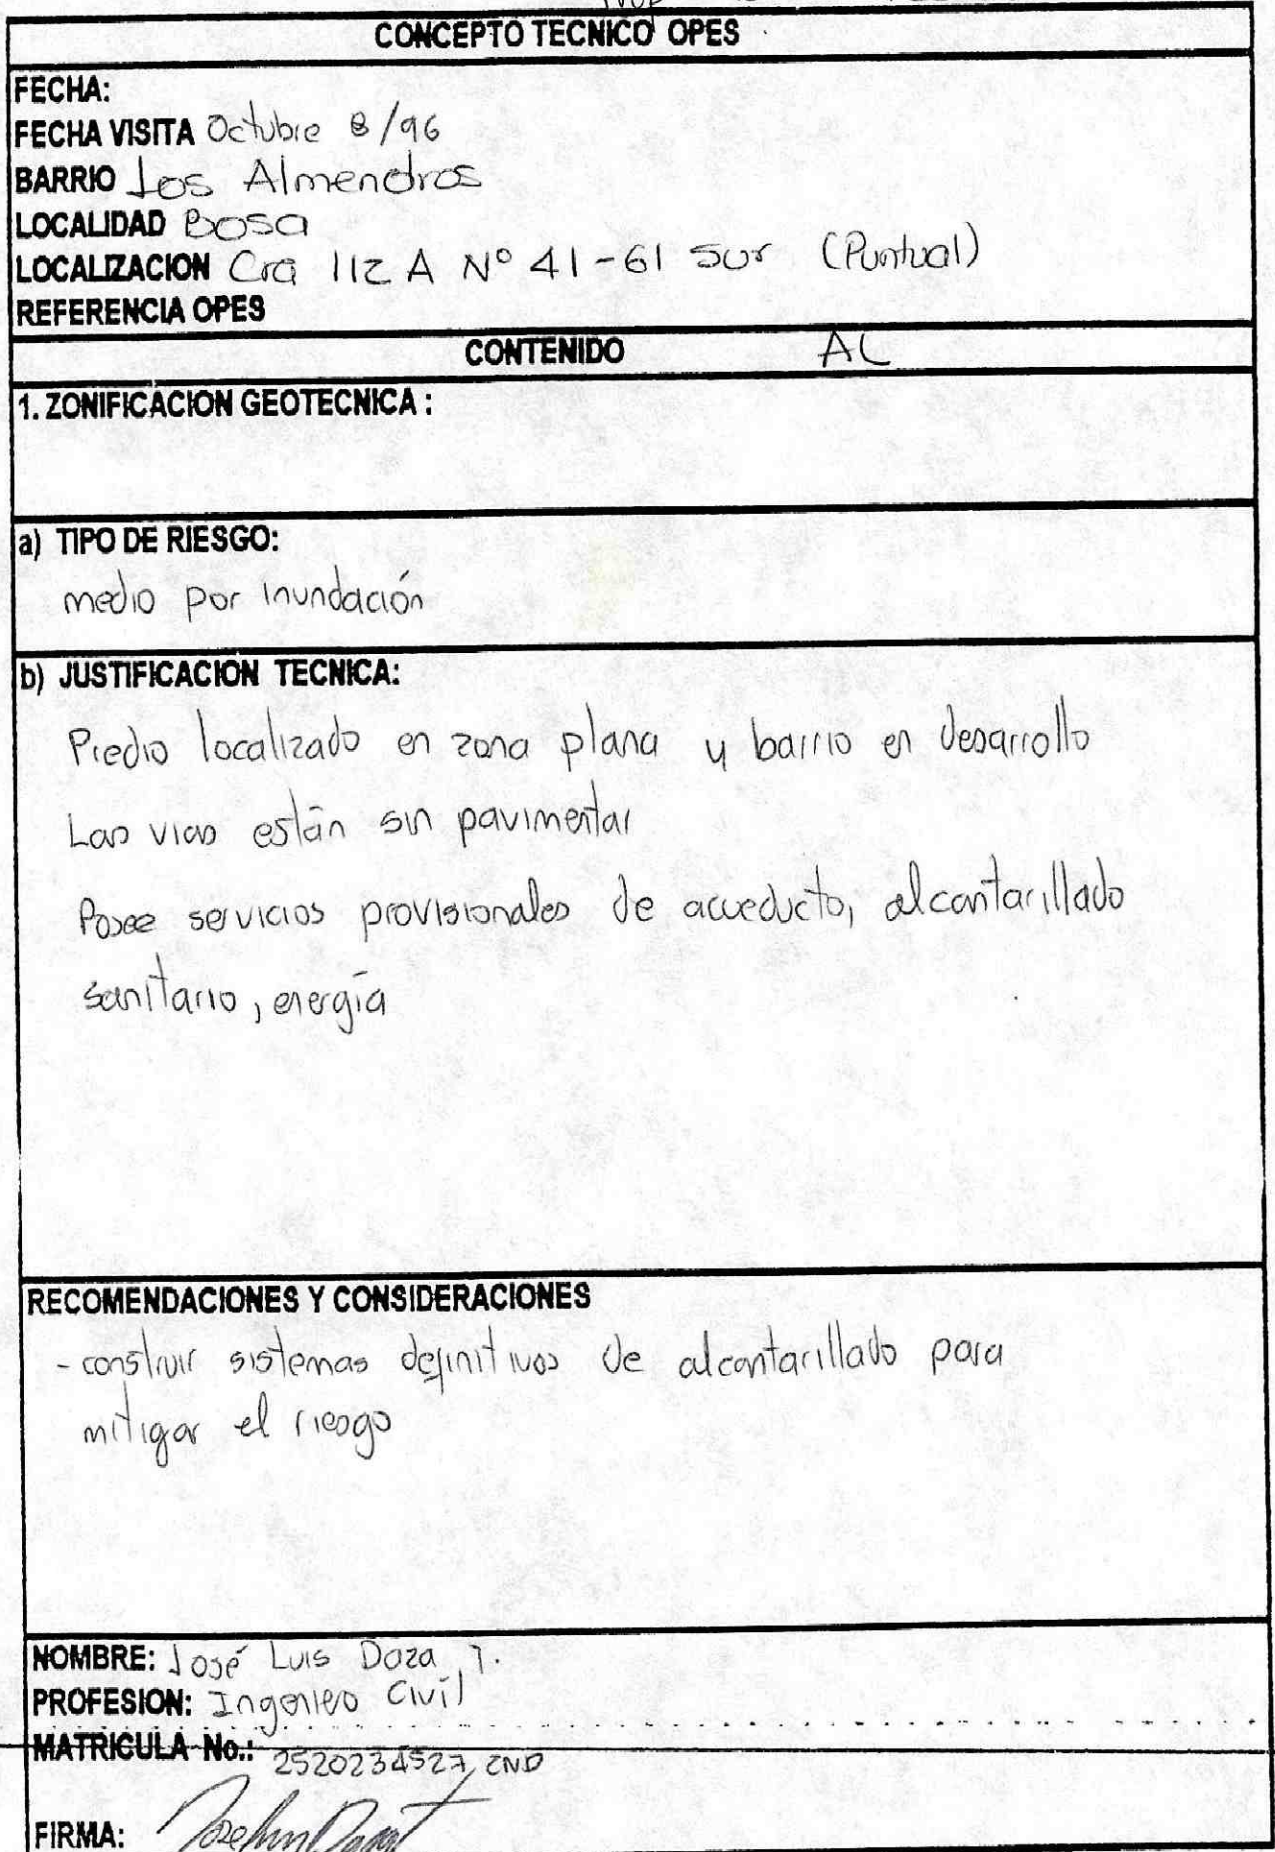 CONCEPTO TECNICO OPES
FECHA:
FECHA VISITA Octubre 8/96
BARRIO Los Almendros
LOCALIDAD Bosa
LOCALIZACION Cra 112 A Nº 41-61 Sur (Puntual)
REFERENCIA OPES
CONTENIDO AL
1. ZONIFICACION GEOTECNICA :
a) TIPO DE RIESGO:
medio por inundación
b) JUSTIFICACION TECNICA:
Predio localizado en zona plana y barrio en desarrollo
Las vias están sin pavimentar
Posee servicios provisionales de acueducto, alcantarillado
sanitario, energía
RECOMENDACIONES Y CONSIDERACIONES
- construir sistemas definitivos de alcantarillado para
mitigar el riesgo
NOMBRE: José Luis Daza
PROFESION: Ingeniero Civil
MATRICULA No.: 2520234527 CND
FIRMA: